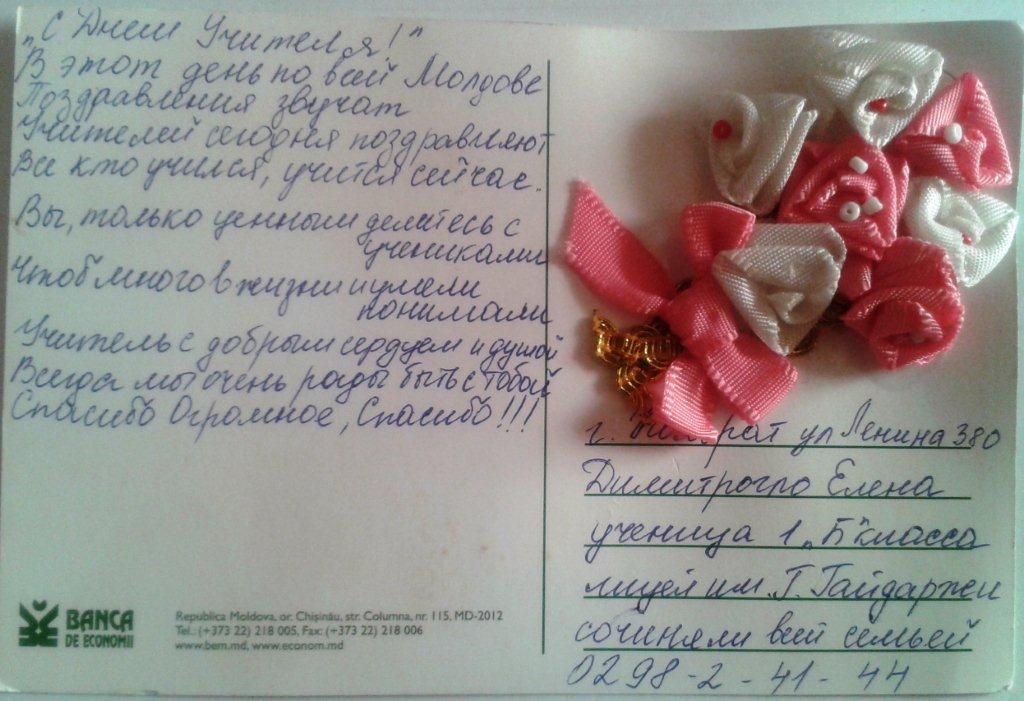 "С Днем Учителя!"
В этот день по всей Молдове
Поздравления звучат
Учителей сегодня поздравляют
Все кто учился, учится сейчас.
Вы, только ценным делитесь с
учениками
Чтоб много в жизни умели
понимали
Учитель с добрым сердцем и душой
Всегда мы очень рады быть с тобой
Спасибо Огромное, Спасибо!!!
BANCA
DE ECONOMII
Republica Moldova, or. Chişinău, str. Columna, nr. 115, MD-2012
Tel.: (+373 22) 218 005, Fax: (+373 22) 218 006
www.bem.md, www.economii.md
г. ул Ленина 380
Димитрогло Елена
ученица 1 „Б" класса
лицея им. Г. Гайдаржи
сочиняли всей семьей
0298-2-41-44